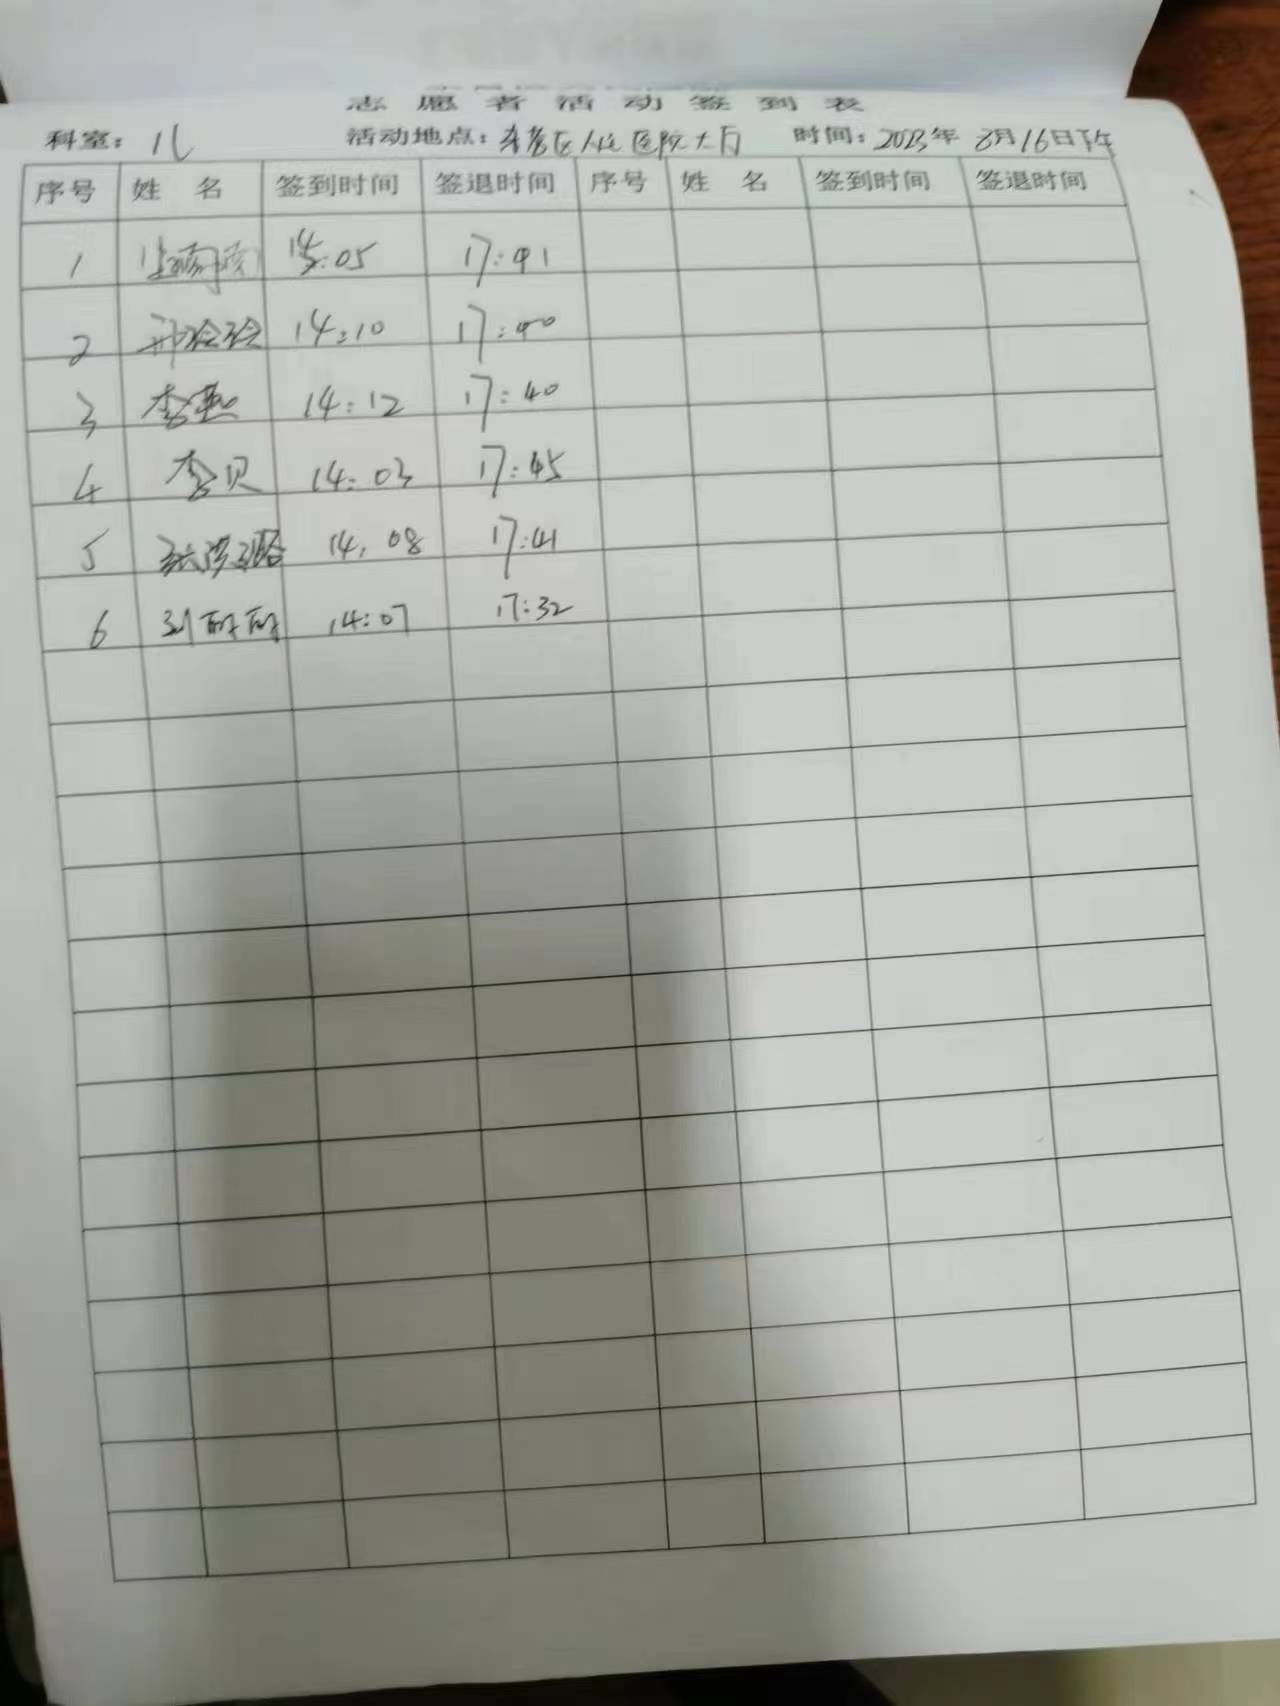 志愿者活动签到表
科室：儿 活动地点：区人民医院大门 时间：2023年8月16日下午
序号 姓名 签到时间 签退时间 序号 姓名 签到时间 签退时间
1 14:05 17:41
2 14:10 17:40
3 李 14:12 17:40
4 李贝 14:03 17:45
5 张 14:08 17:41
6 刘 14:07 17:32